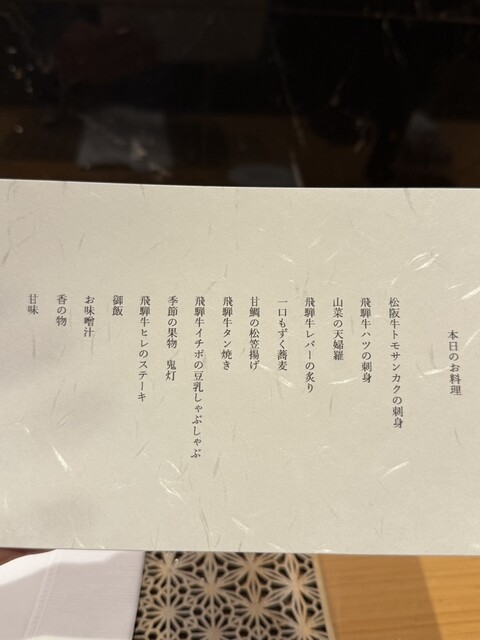 本日のお料理
松阪牛トモサンカクの刺身
飛騨牛ハツの刺身
山菜の天婦羅
飛騨牛レバーの炙り
一口もずく蕎麦
甘鯛の松笠揚げ
飛騨牛タン焼き
飛騨牛イチボの豆乳しゃぶしゃぶ
季節の果物　鬼灯
飛騨牛ヒレのステーキ
御飯
お味噌汁
香の物
甘味